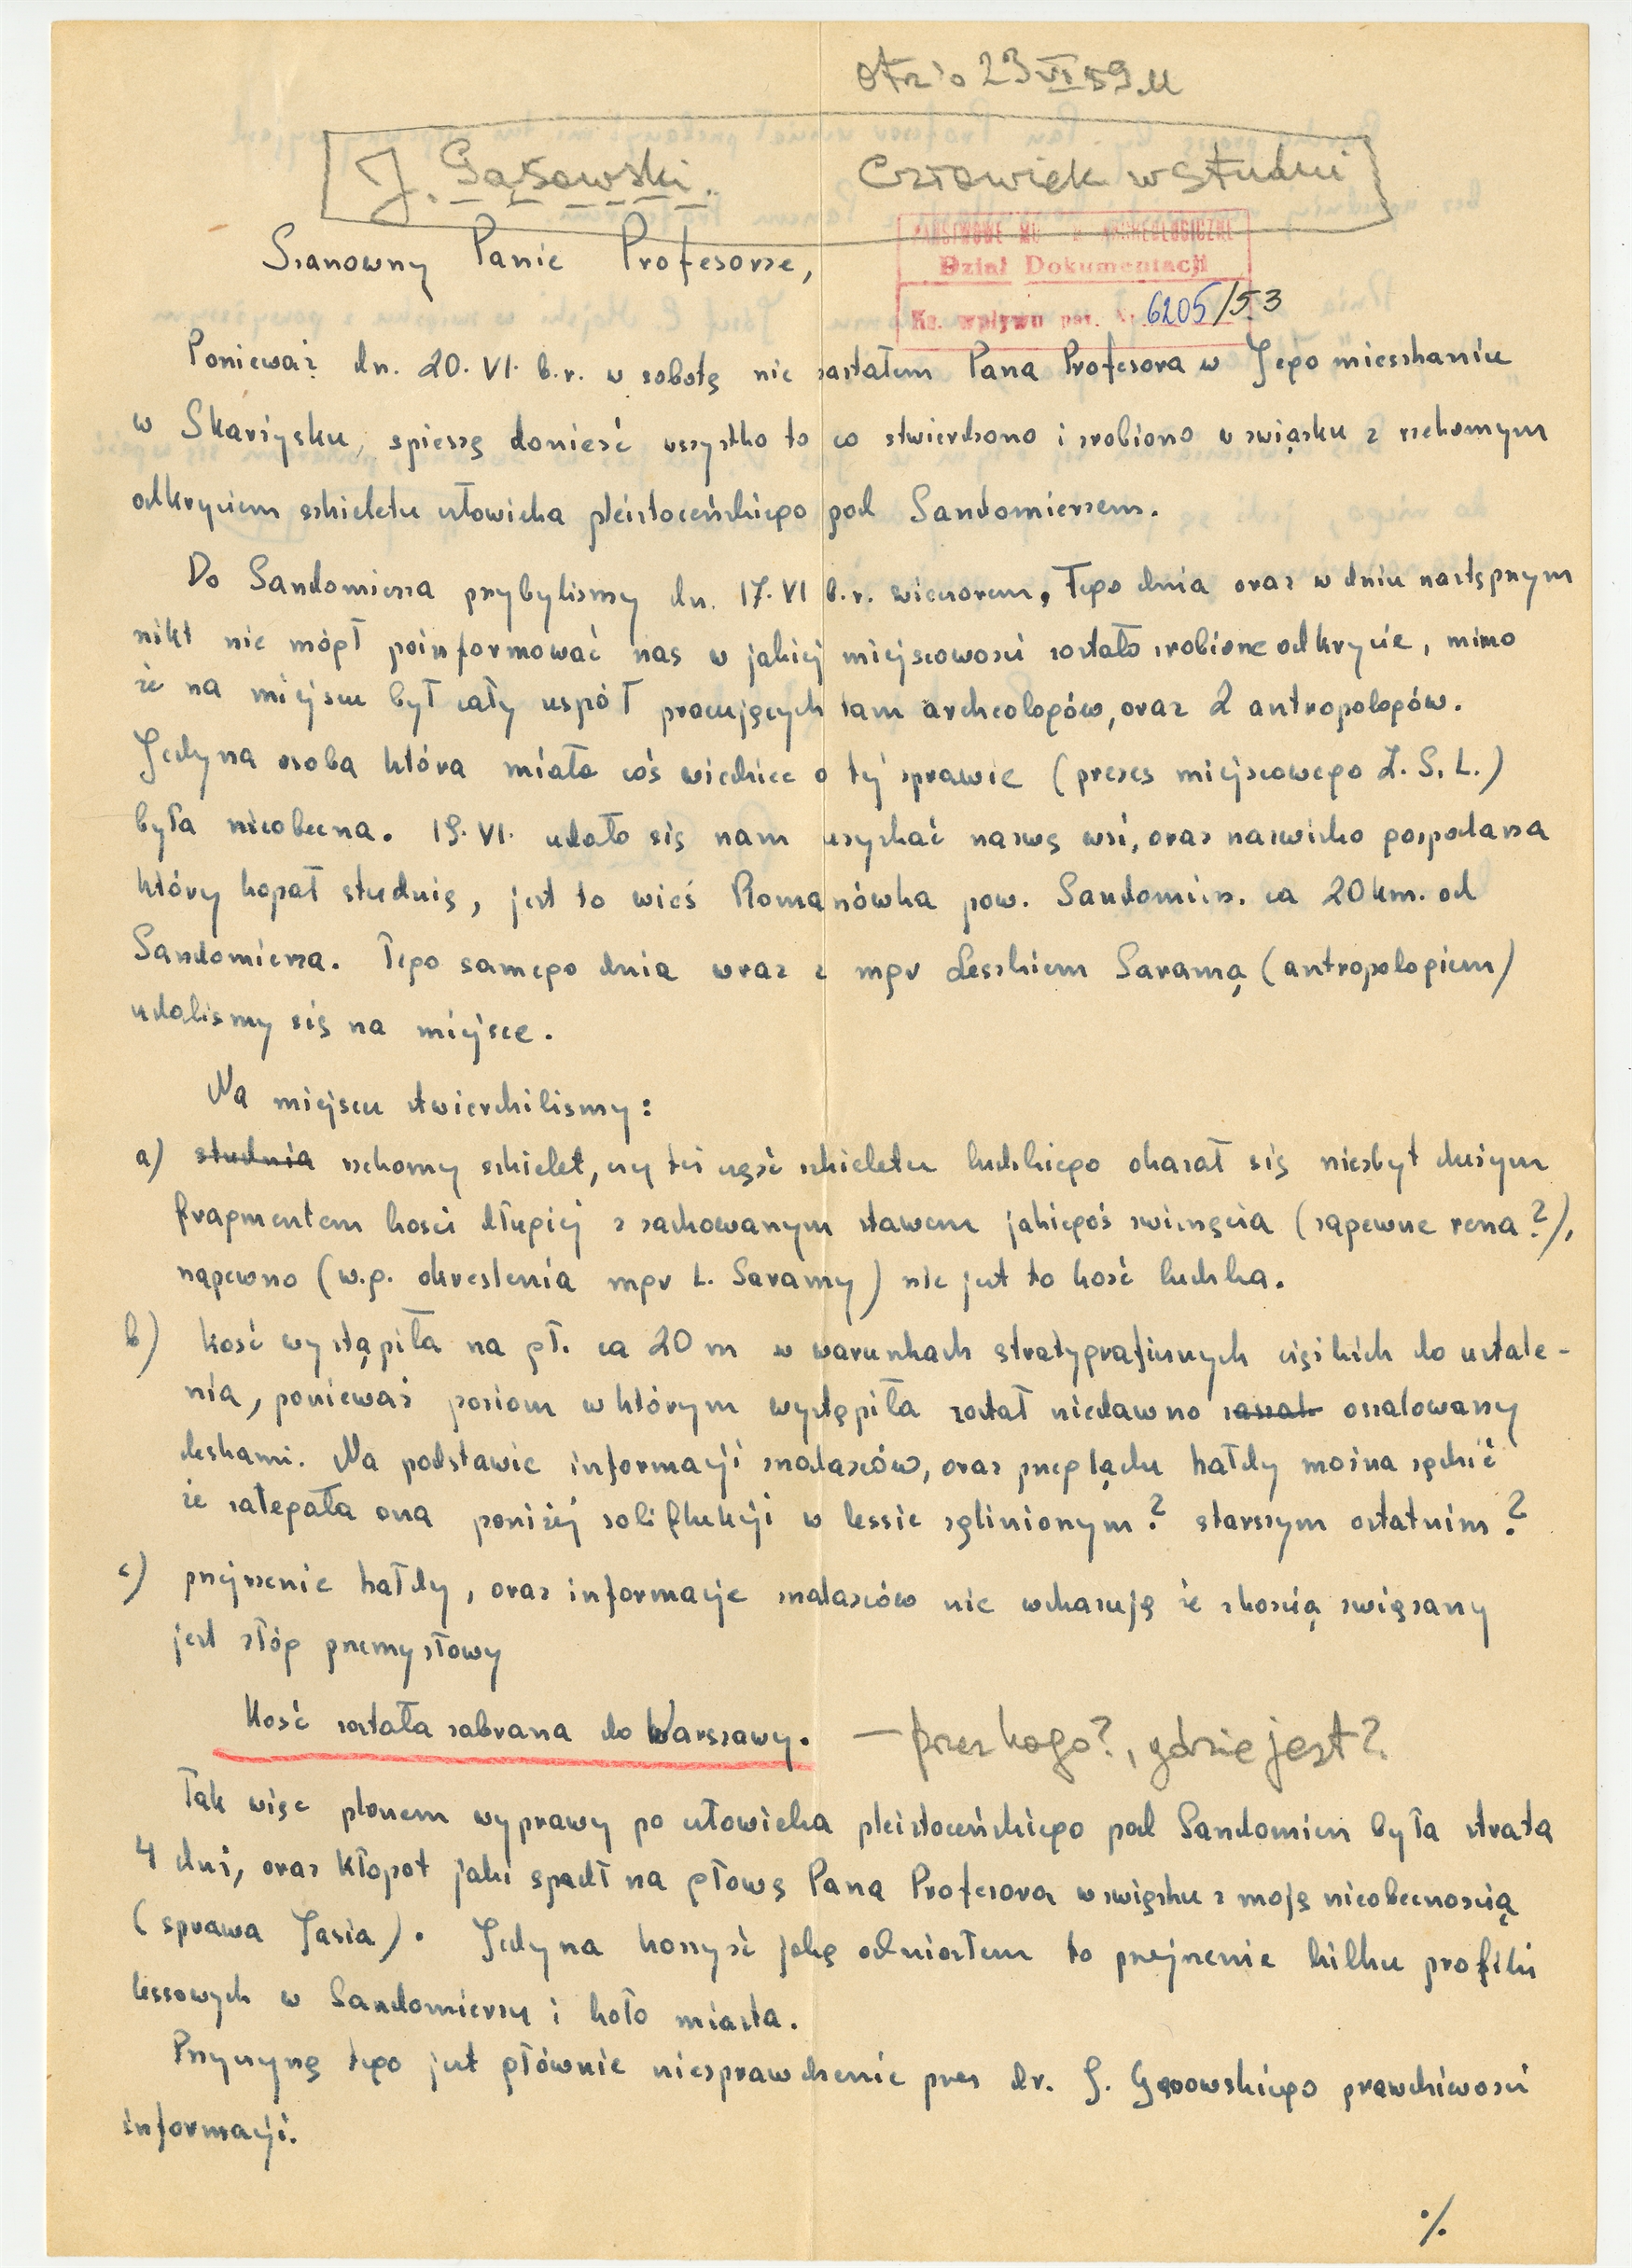 23 VI 59.
J. Gąsowski. Człowiek w studni
PAŃSTWOWE ARCHEOLOGICZNE
Dział Dokumentacji
Ks. wpływu poz. 6205/53
Szanowny Panie Profesorze,
Ponieważ dn. 20. VI. b.r. w sobotę nie zastałem Pana Profesora w Jego mieszkaniu
w Skarżysku, spieszę donieść wszystko to co stwierdzono i zrobiono w związku z rzekomym
odkryciem szkieletu człowieka plejstoceńskiego pod Sandomierzem.
Do Sandomierza przybylismy dn. 17. VI b.r. wieczorem, Tego dnia oraz w dniu następnym
nikt nie mógł poinformować nas w jakiej miejscowości zostało zrobione odkrycie, mimo
że na miejscu był cały zespół pracujących tam archeologów, oraz 2 antropologów.
Jedyna osoba która miała coś wiedzieć o tej sprawie (prezes miejscowego Z. S. L.)
była nieobecna. 19. VI. udało się nam uzyskać nazwę wsi, oraz nazwisko gospodarza
który kopał studnię, jest to wieś Romanówka pow. Sandomierz. ca 20 km. od
Sandomierza. Tego samego dnia wraz z mgr Leszkiem Saramą (antropologiem)
udalismy się na miejsce.
Na miejscu stwierdzilismy:
a) studnia rzekomy szkielet, czy też część szkieletu ludzkiego okazał się niezbyt dużym
fragmentem kości długiej z zachowanym stawem jakiegoś zwierzęcia (zapewne rena?),
napewno (w.g. okreslenia mgr L. Saramy) nie jest to kość ludzka.
b) kość wystąpiła na gł. ca 20 m w warunkach stratygraficznych ciężkich do ustale-
nia, ponieważ poziom w którym wystąpiła został niedawno oszalowany
deskami. Na podstawie informacji znalazców, oraz przeglądu hałdy można sądzić
że zalegała ona poniżej soliflukcji w lessie zglinionym? starszym ostatnim?
c) przejrzenie hałdy, oraz informacje znalazców nie wskazują że z kością związany
jest złóg przemysłowy
Kość została zabrana do Warszawy. — przez kogo?, gdzie jest?
Tak więc plonem wyprawy po człowieka plejstoceńskiego pod Sandomierz była strata
4 dni, oraz kłopot jaki spadł na głowę Pana Profesora w związku z moją nieobecnością
(sprawa Jasia). Jedyna korzyść jaką odniosłem to przejrzenie kilku profili
lessowych w Sandomierzu i koło miasta.
Przyczyną tego jest głównie niesprawdzenie przez dr. J. Gąsowskiego prawdziwości
informacji.
./.